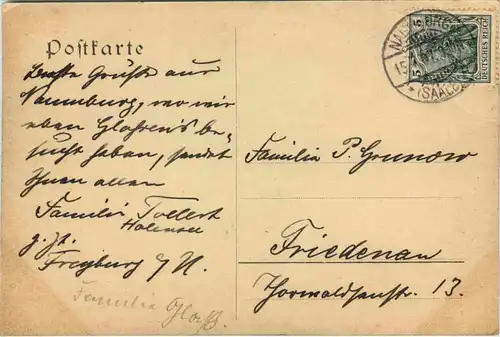 Postkarte
Beste Grüße aus
Naumburg, wo wir
eben Glahren's be-
sucht haben, sendet
Ihnen allen
Familie Tollert
Halensee
z. Zt.
Freyburg a/U.
Familie
NAUMBURG
(SAALE)
DEUTSCHES REICH
5
Familie P. Grunow
Friedenau
Thorwaldsenstr. 13.